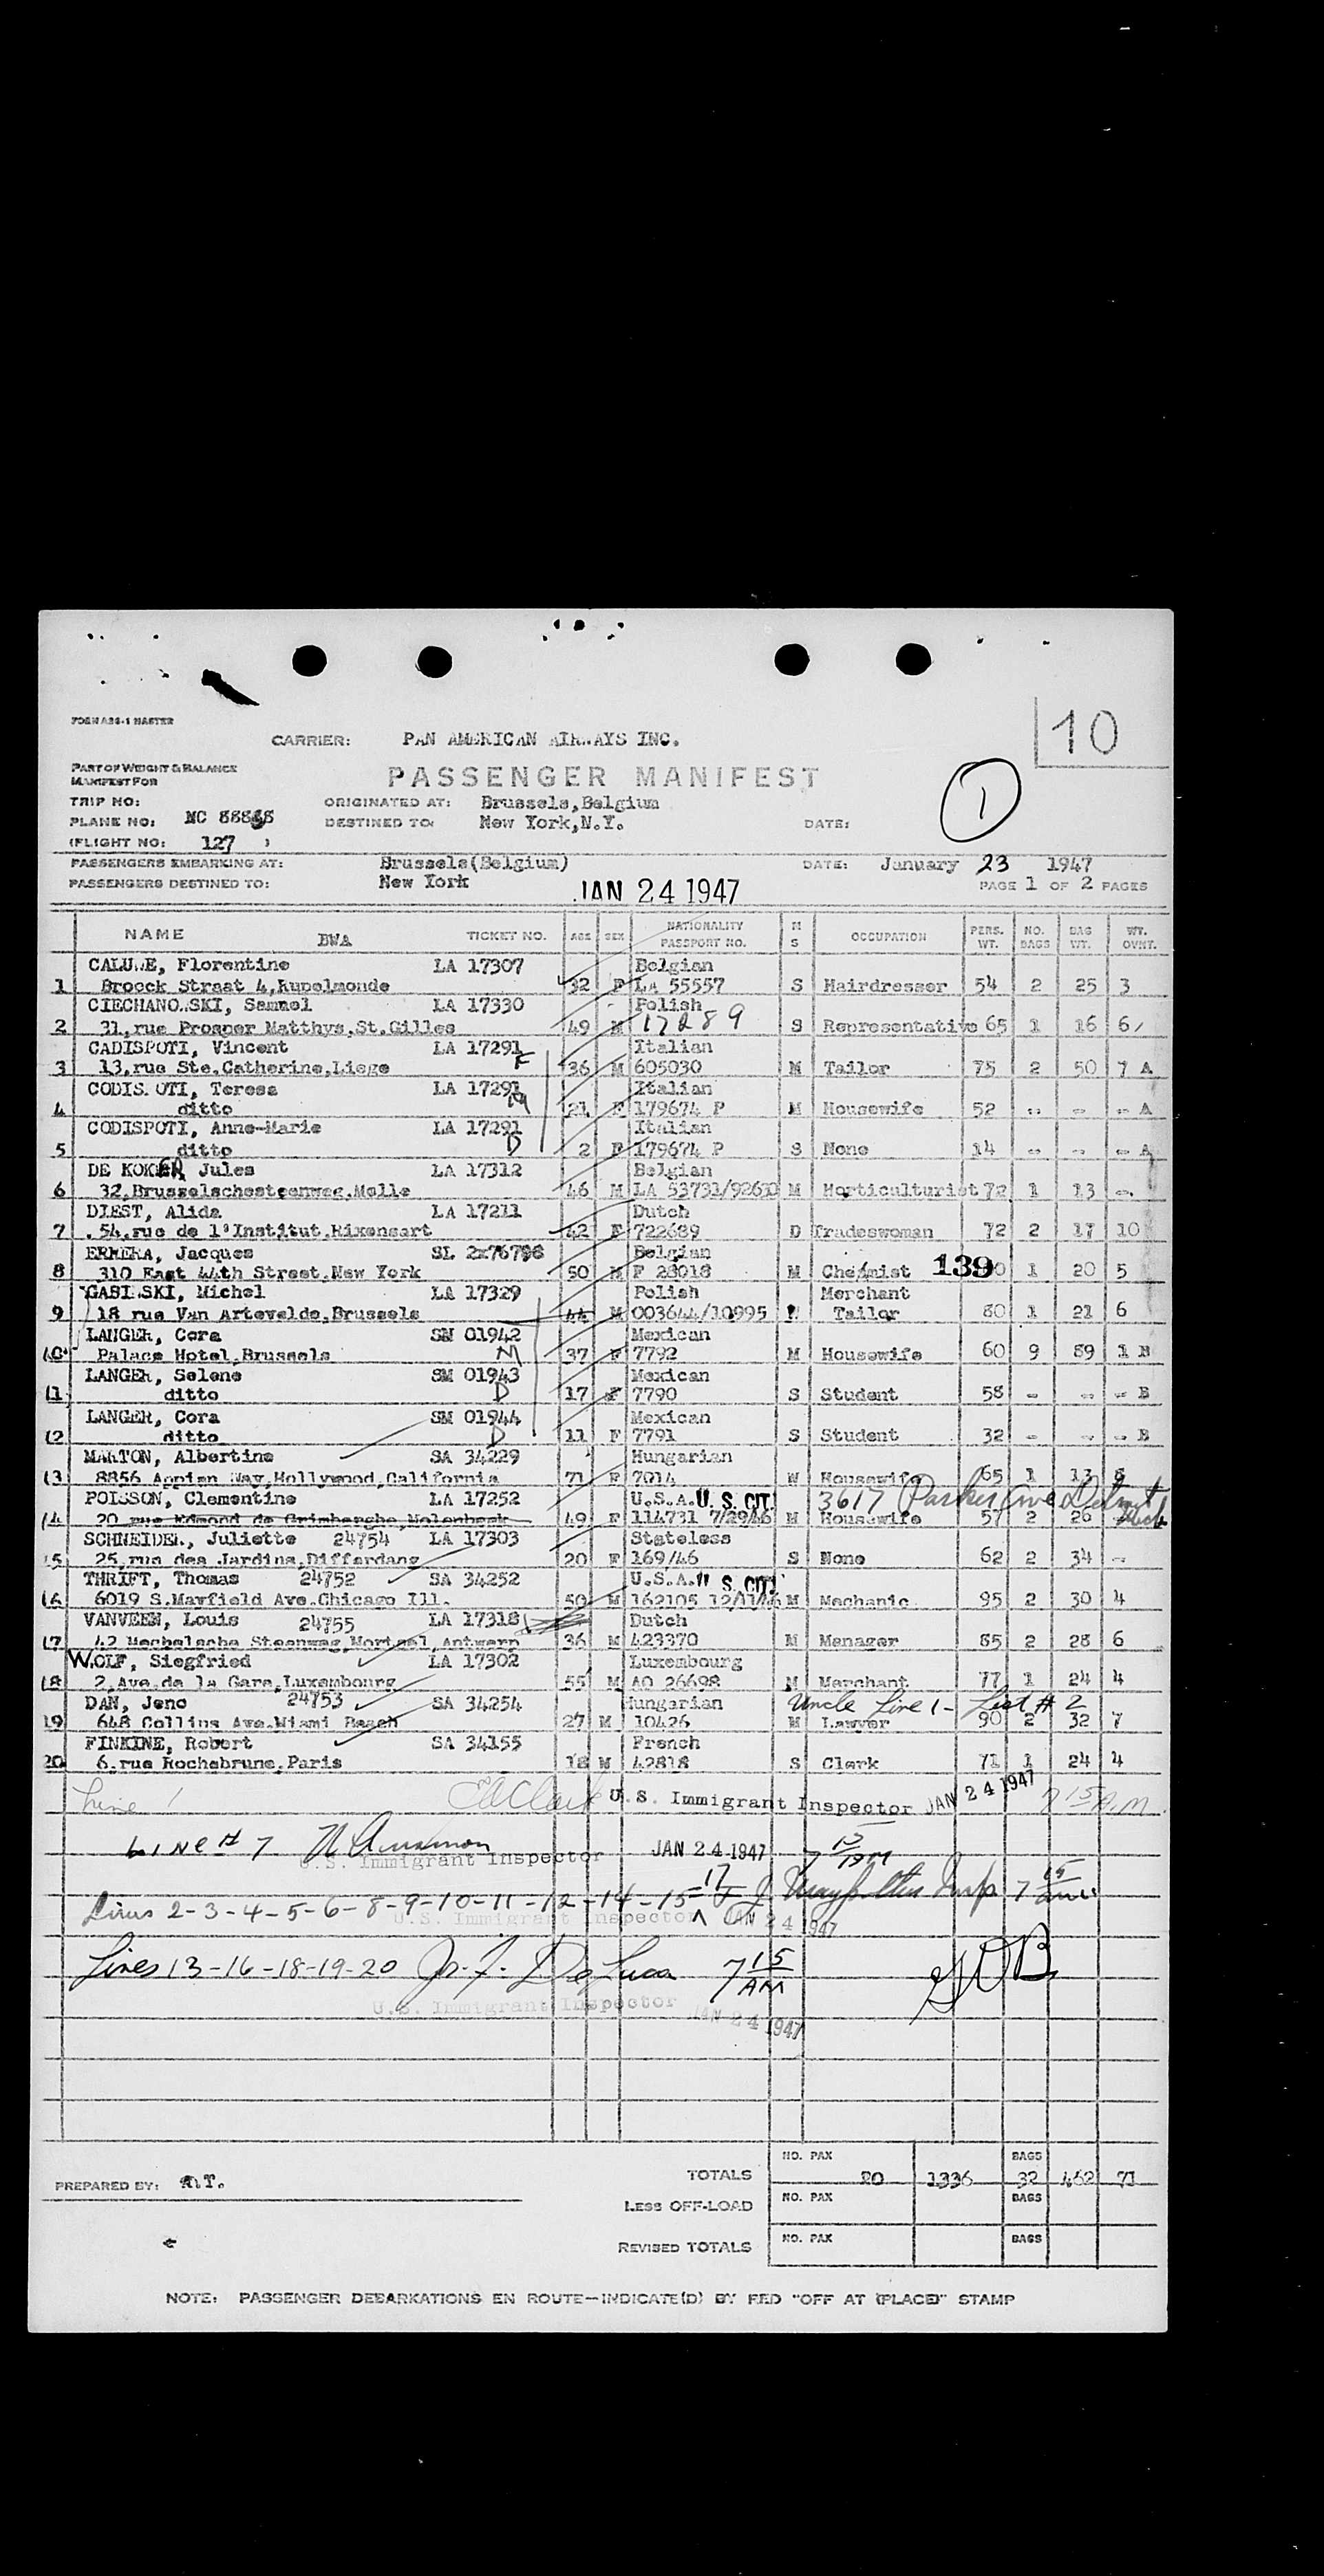 FORM A26-1 MASTER
10
CARRIER: PAN AMERICAN AIRWAYS INC.
PART OF WEIGHT & BALANCE
MANIFEST FOR
PASSENGER MANIFEST
1
TRIP NO:
ORIGINATED AT: Brussels,Belgium
PLANE NO: NC
DESTINED TO: New York,N.Y.
DATE:
(FLIGHT NO: 127 )
PASSENGERS EMBARKING AT: Brussels(Belgium)
DATE: January 23 1947
PASSENGERS DESTINED TO: New York
JAN 24 1947
PAGE 1 OF 2 PAGES
NAME BWA TICKET NO. AGE SEX NATIONALITY PASSPORT NO. M S OCCUPATION PERS. WT. NO. BAGS BAG WT. WT. OVNT.
CALUWE, Florentine LA 17307 Belgian
1 Broeck Straat 4,Rupelmonde 32 F LA 55557 S Hairdresser 54 2 25 3
CIECHANOWSKI, Sammel LA 17330 Polish
2 31,rue Prosper Matthys,St.Gilles 49 M 17289 S Representative 65 1 16 6
CADISPOTI, Vincent LA 17291 F Italian
3 13,rue Ste.Catherine,Liege 36 M 605030 M Tailor 75 2 50 7 A
CODISPOTI, Teresa LA 17291 M Italian
4 ditto 21 F 179674 P M Housewife 52 - - - A
CODISPOTI, Anne-Marie LA 17291 D Italian
5 ditto 2 F 179674 P S None 14 - - - A
DE KOKER, Jules LA 17312 Belgian
6 32,Brusselschesteenweg,Melle 46 M LA 53731/92610 M Horticulturist 72 1 13 -
DIEST, Alida LA 17211 Dutch
7 54,rue de l'Institut,Rixensart 42 F 722689 D Tradeswoman 72 2 17 10
ERRERA, Jacques SL 2x76798 Belgian
8 310 East 44th Street,New York 50 M F 28018 M Chemist 139 1 20 5
GABINSKI, Michel LA 17329 Polish Merchant
9 18 rue Van Artevelde,Brussels 44 M 003644/10995 Tailor 80 1 21 6
LANGER, Cora SM 01942 M Mexican
10 Palace Hotel,Brussels 37 F 7792 M Housewife 60 9 89 1 B
LANGER, Selene SM 01943 D Mexican
11 ditto 17 F 7790 S Student 58 - - - B
LANGER, Cora SM 01944 D Mexican
12 ditto 11 F 7791 S Student 32 - - - B
MARTON, Albertine SA 34229 Hungarian
13 8856 Appian Way,Hollywood,California 71 F 7014 W Housewife 65 1 13 8
POISSON, Clementine LA 17252 U.S.A. U. S. CIT. 3617 Parker Ave Detroit Mich
14 20 rue Edmond de Grimberghe,Molenbeek 49 F 114731 7/2946 M Housewife 57 2 26
SCHNEIDER, Juliette 24754 LA 17303 Stateless
15 25,rue des Jardins,Differdang 20 F 169/46 S None 62 2 34 -
THRIFT, Thomas 24752 SA 34252 U.S.A. U. S. CIT.
16 6019 S.Mayfield Ave.Chicago Ill. 50 M 162105 12/11/46 M Mechanic 95 2 30 4
VANVEEN, Louis 24755 LA 17318 Dutch
17 42 Mechelsche Steenweg,Mortsel,Antwerp 36 M 423370 M Manager 85 2 28 6
WOLF, Siegfried LA 17302 Luxembourg
18 2,Ave.de la Gare,Luxembourg 55 M AO 26698 M Merchant 77 1 24 4
DAN, Jeno 24753 SA 34254 Hungarian Uncle Line 1- List # 2
19 648 Collins Ave.Miami Beach 27 M 10426 M Lawyer 90 2 32 7
FINKINE, Robert SA 34155 French
20 6,rue Rochebrune,Paris 18 M 42818 S Clerk 71 1 24 4
Line 1 E A Clark U.S. Immigrant Inspector JAN 24 1947 7 15 A.M.
LINE # 7 U.S. Immigrant Inspector JAN 24 1947 7 15 AM
Lines 2-3-4-5-6-8-9-10-11-12-14-15-17 Insp 7 15 am
U.S. Immigrant Inspector JAN 24 1947
Lines 13-16-18-19-20 De Luca 7 15 AM
U.S. Immigrant Inspector JAN 24 1947
NO. PAX BAGS
TOTALS 20 1336 32 462 71
PREPARED BY: A.T.
LESS OFF-LOAD NO. PAX BAGS
REVISED TOTALS NO. PAX BAGS
NOTE: PASSENGER DEBARKATIONS EN ROUTE—INDICATE(D) BY RED "OFF AT (PLACE)" STAMP